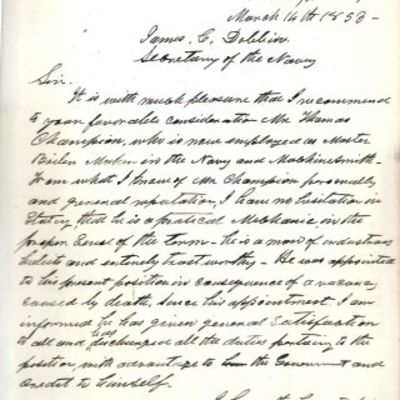 March 14th 1853 -
James. C. Dobbin.
Secretary of the Navy
Sir.
It is with much pleasure that I recommend
to your favorable consideration Mr. Thomas
Champion, who is now employed as Master
Boiler Maker in the Navy and Machinesmith -
From what I know of Mr Champion personally
and general reputation, I have no hesitation in
stating, that he is a pratical Mechanic, in the
proper sense of the term - he is a man of industrious
habits and entirely trustworthy - He was appointed
to his present position in consequence of a vacancy
caused by death, since his appointment, I am
informed he has given general satisfaction
to all and has discharged all the duties pertaining to the
position, with advantage to the Government and
credit to himself.